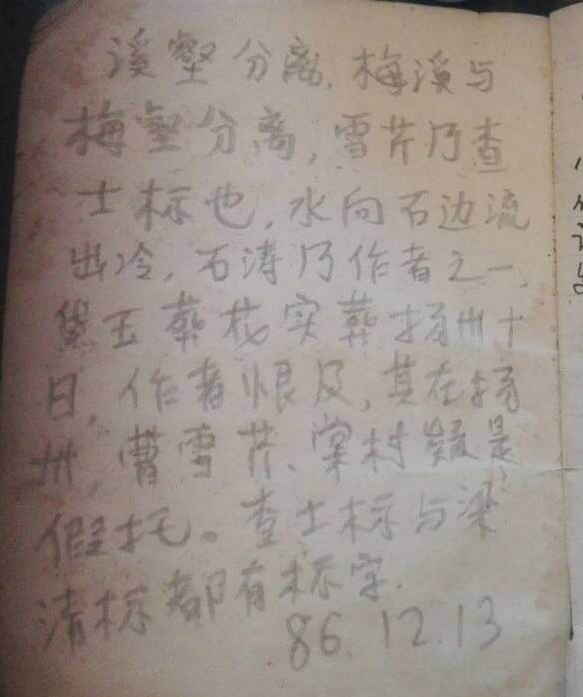 溪壑分离，梅溪与
梅壑分离，雪芹乃查
士标也，水向石边流
出冷，石涛乃作者之一，
黛玉葬花实葬扬州十
日，作者恨及，其在扬
州，曹雪芹、棠村都是
假托。查士标与梁
清标都有标字.
86.12.13